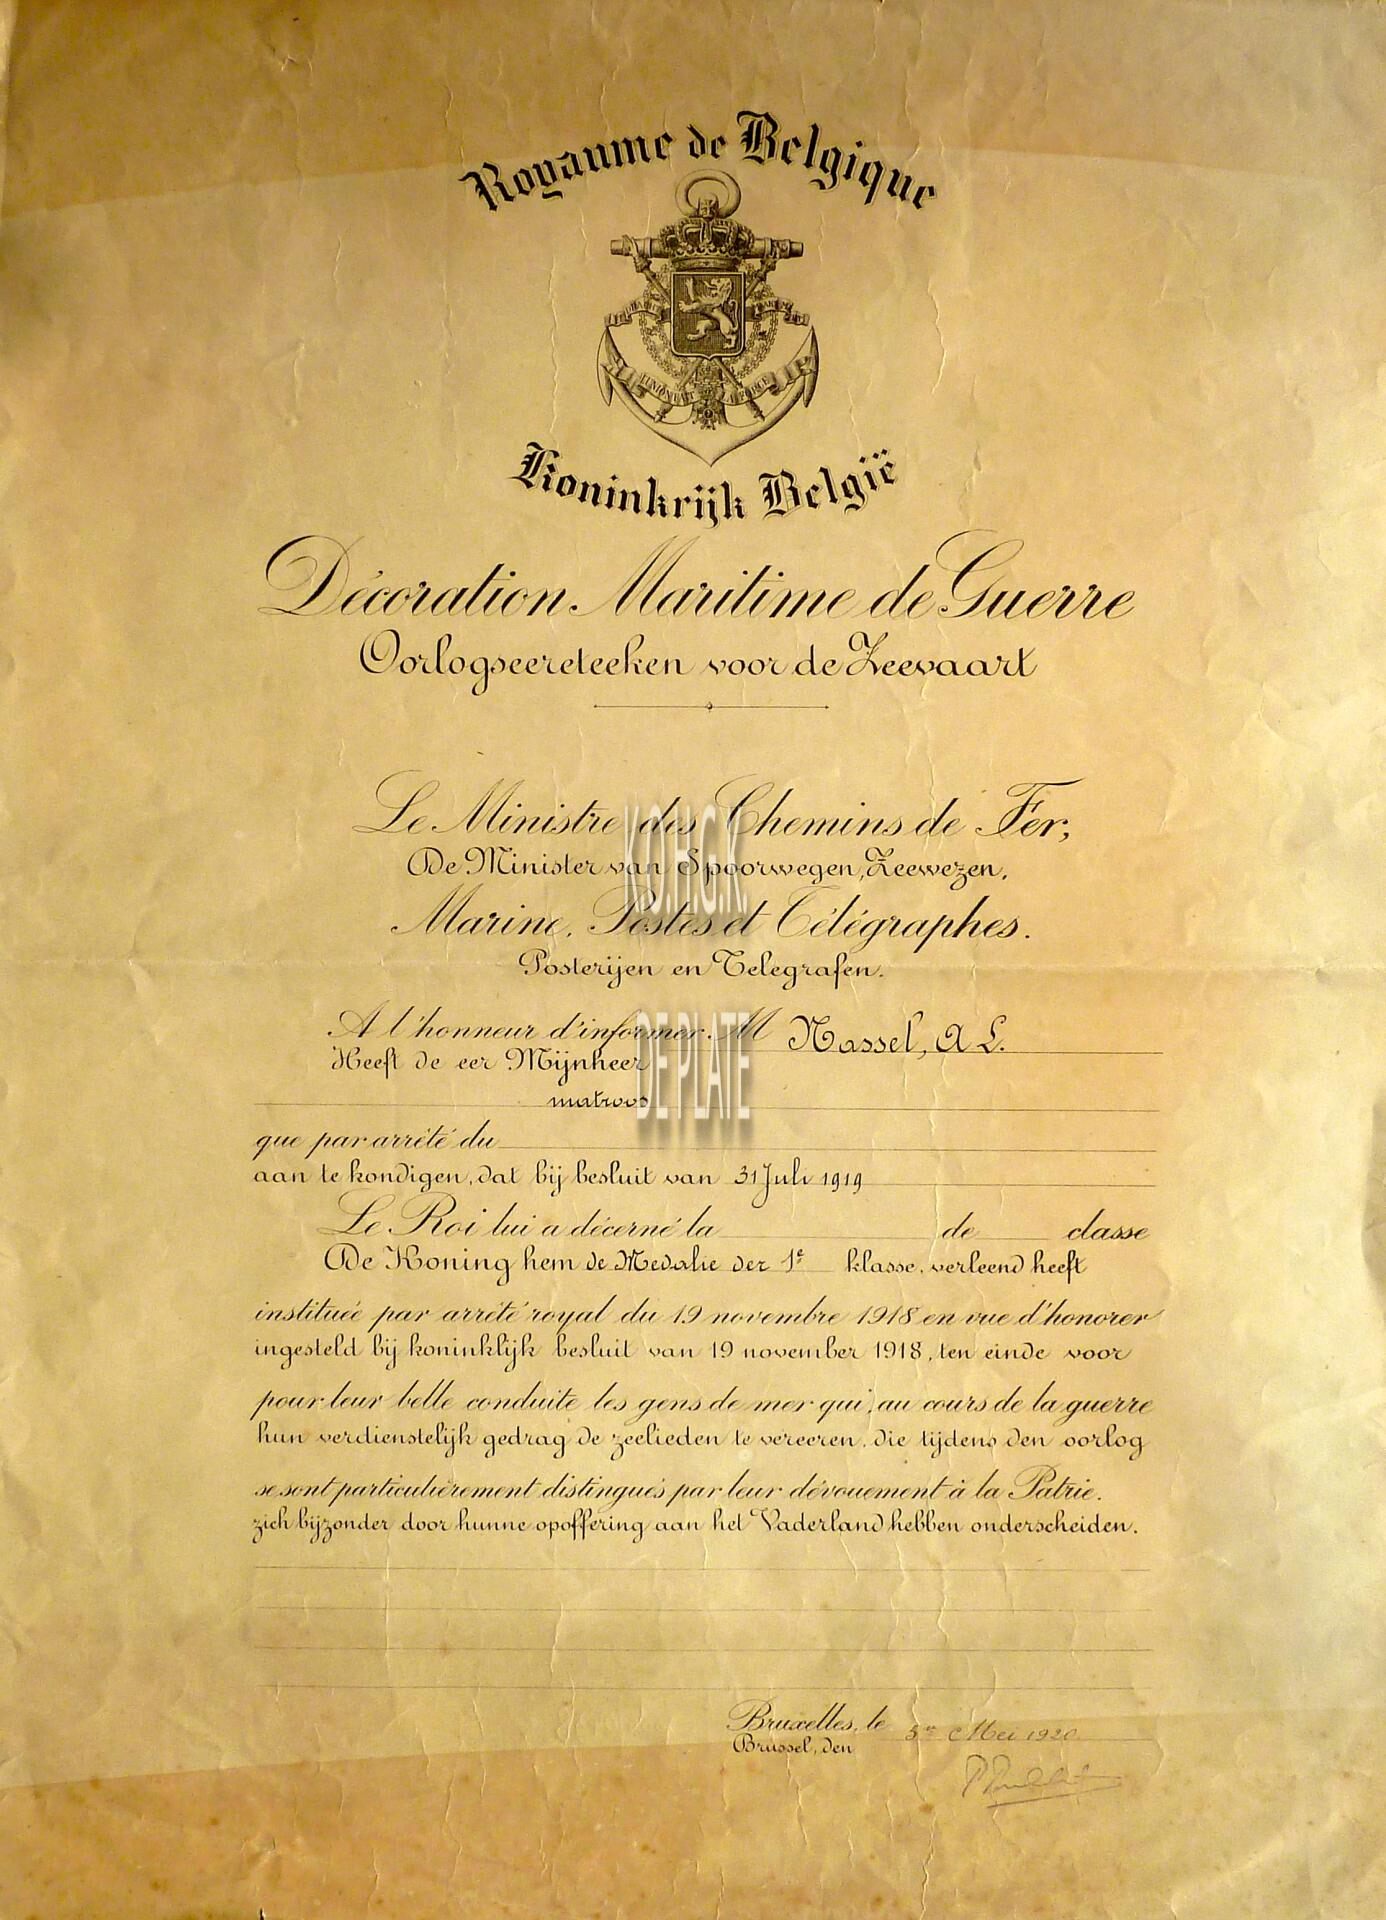 Royaume de Belgique
L'UNION FAIT LA FORCE
Koninkrijk België
Décoration Maritime de Guerre
Oorlogseereteeken voor de Zeevaart
Le Ministre des Chemins de Fer,
De Minister van Spoorwegen, Zeewezen,
Marine, Postes et Télégraphes.
Posterijen en Telegrafen.
K.O.H.G.K.
DE PLATE
A l'honneur d'informer M Nassel, A L.
Heeft de eer Mijnheer
matroos
que par arrêté du
aan te kondigen, dat bij besluit van 31 Juli 1919
Le Roi lui a décerné la de classe
De Koning hem de Medalie der 1e klasse, verleend heeft
instituée par arrêté royal du 19 novembre 1918 en vue d'honorer
ingesteld bij koninklijk besluit van 19 november 1918, ten einde voor
pour leur belle conduite les gens de mer qui, au cours de la guerre
hun verdienstelijk gedrag de zeelieden te vereeren, die tijdens den oorlog
se sont particulièrement distingués par leur dévouement à la Patrie.
zich bijzonder door hunne opoffering aan het Vaderland hebben onderscheiden.
Bruxelles, le 5en Mei 1920
Brussel, den